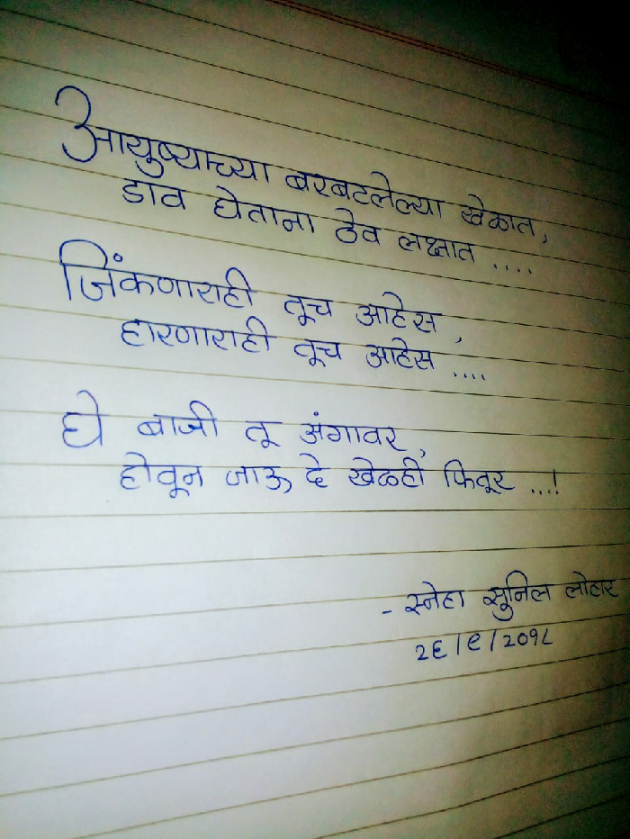 आयुष्याच्या बरबटलेल्या खेळात,
डाव घेताना ठेव लक्षात ....
जिंकणाराही तूच आहेस ,
हारणाराही तूच आहेस ....
घे बाजी तू अंगावर,
होवून जाऊ दे खेळही फितूर ...!
- स्नेहा सुनिल लोहार
२६/९/२०१८